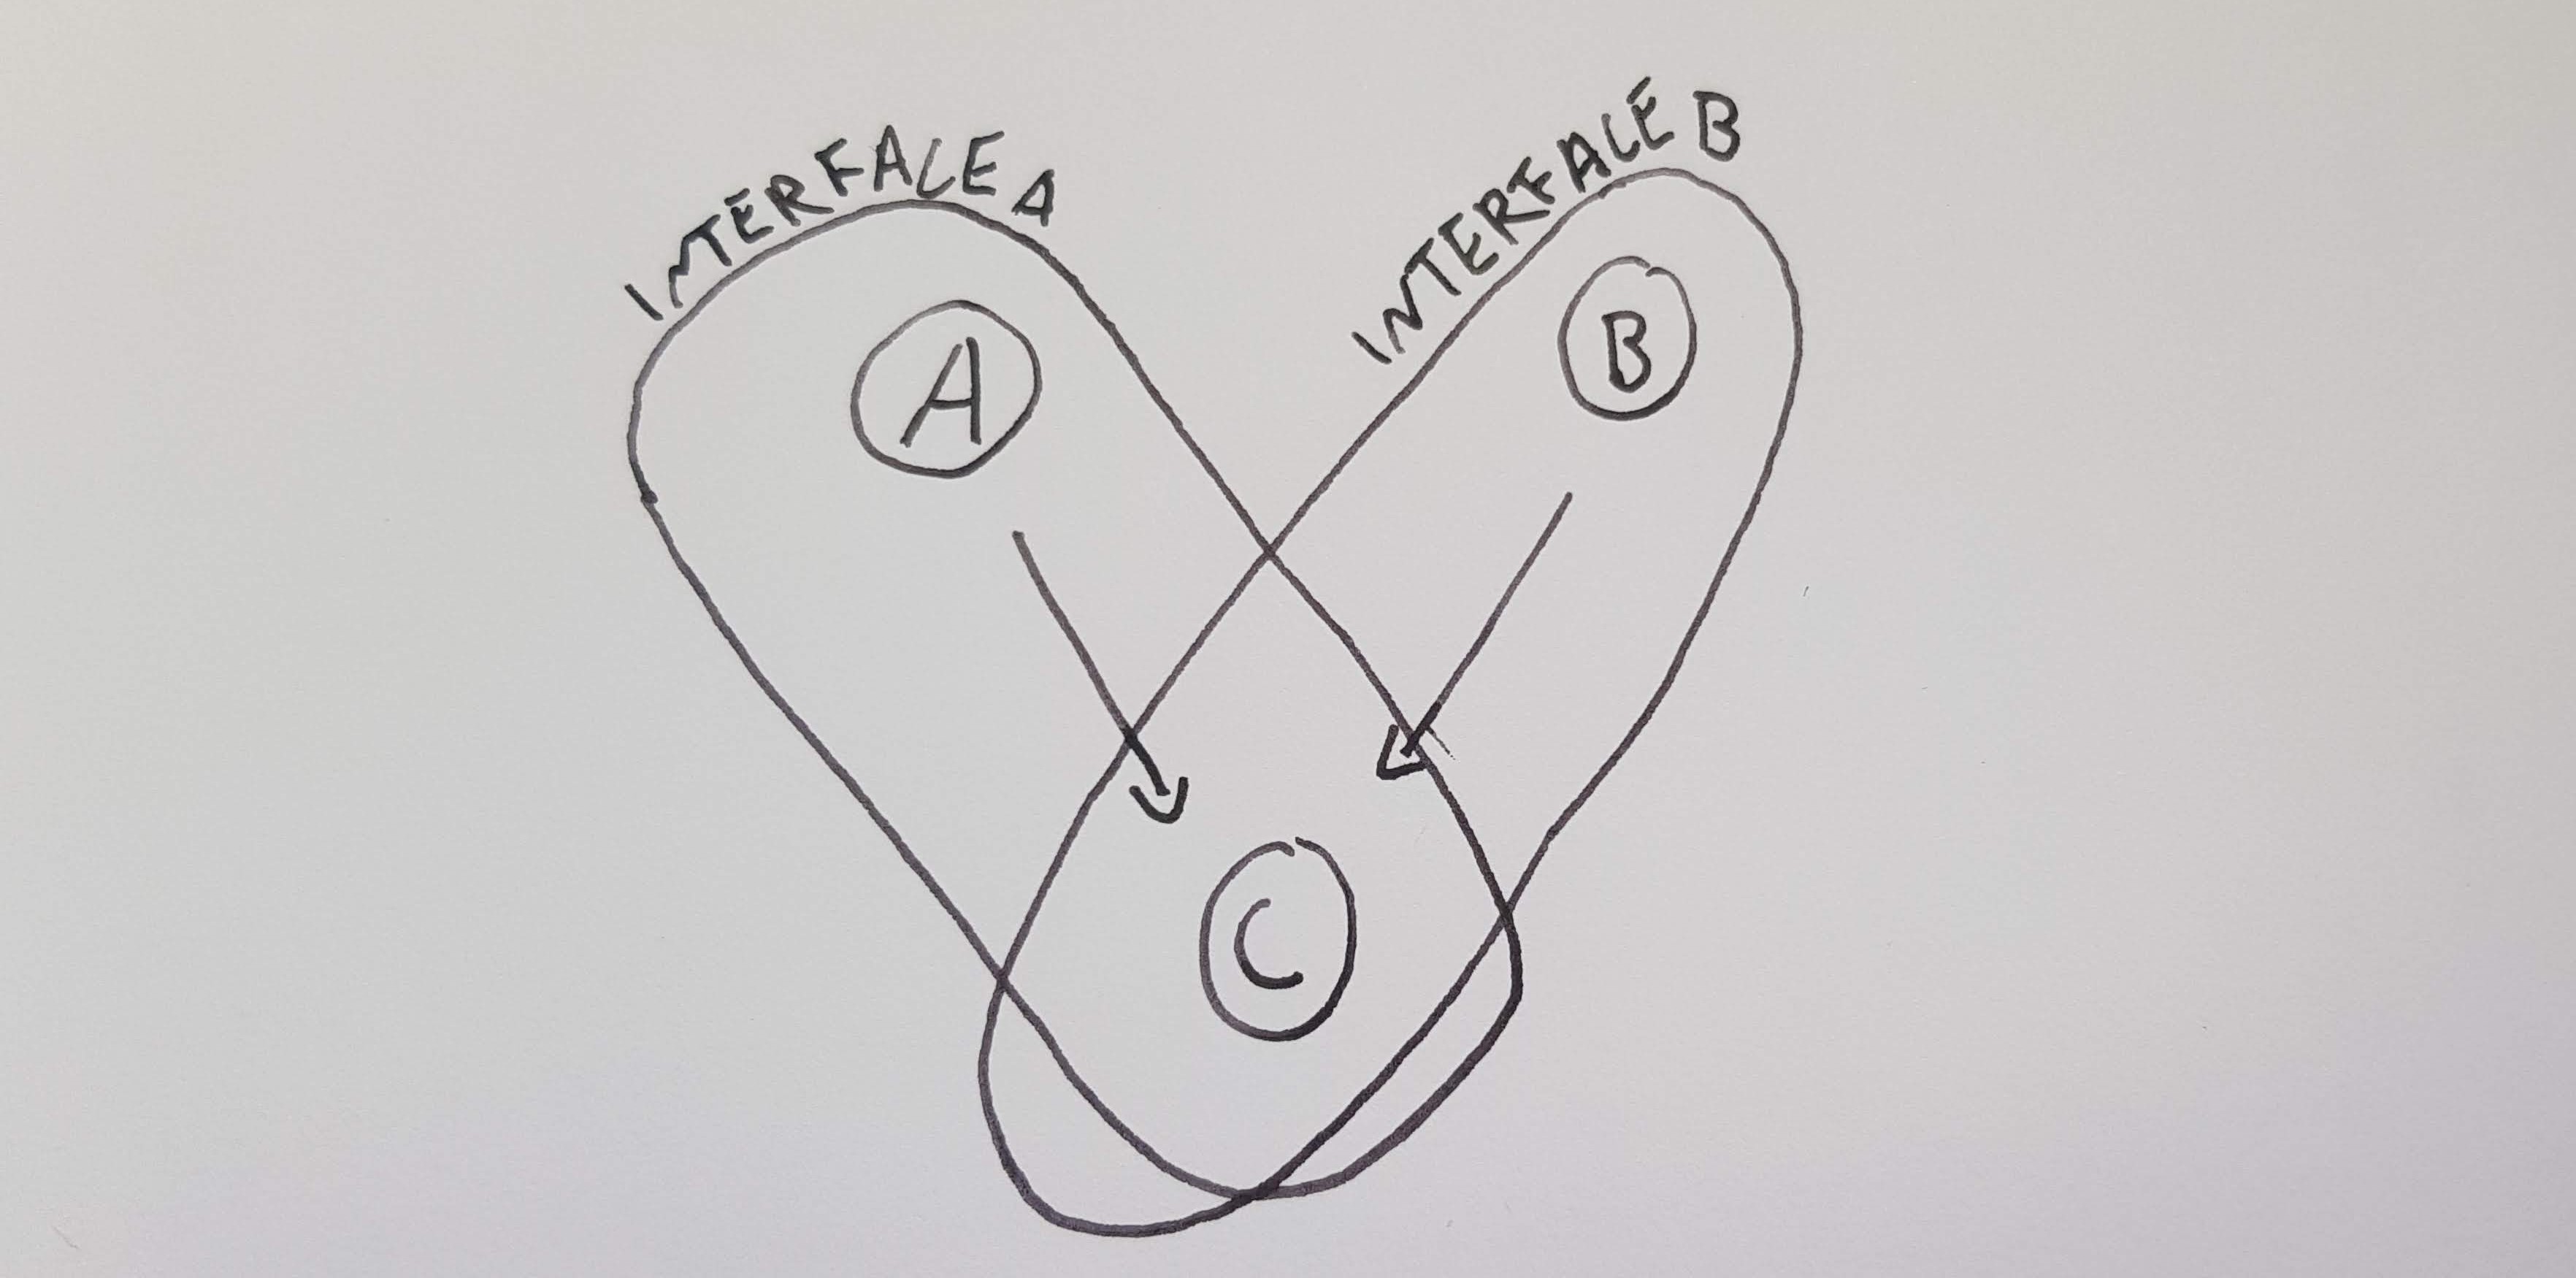 INTERFACE A
INTERFACE B
A
B
C